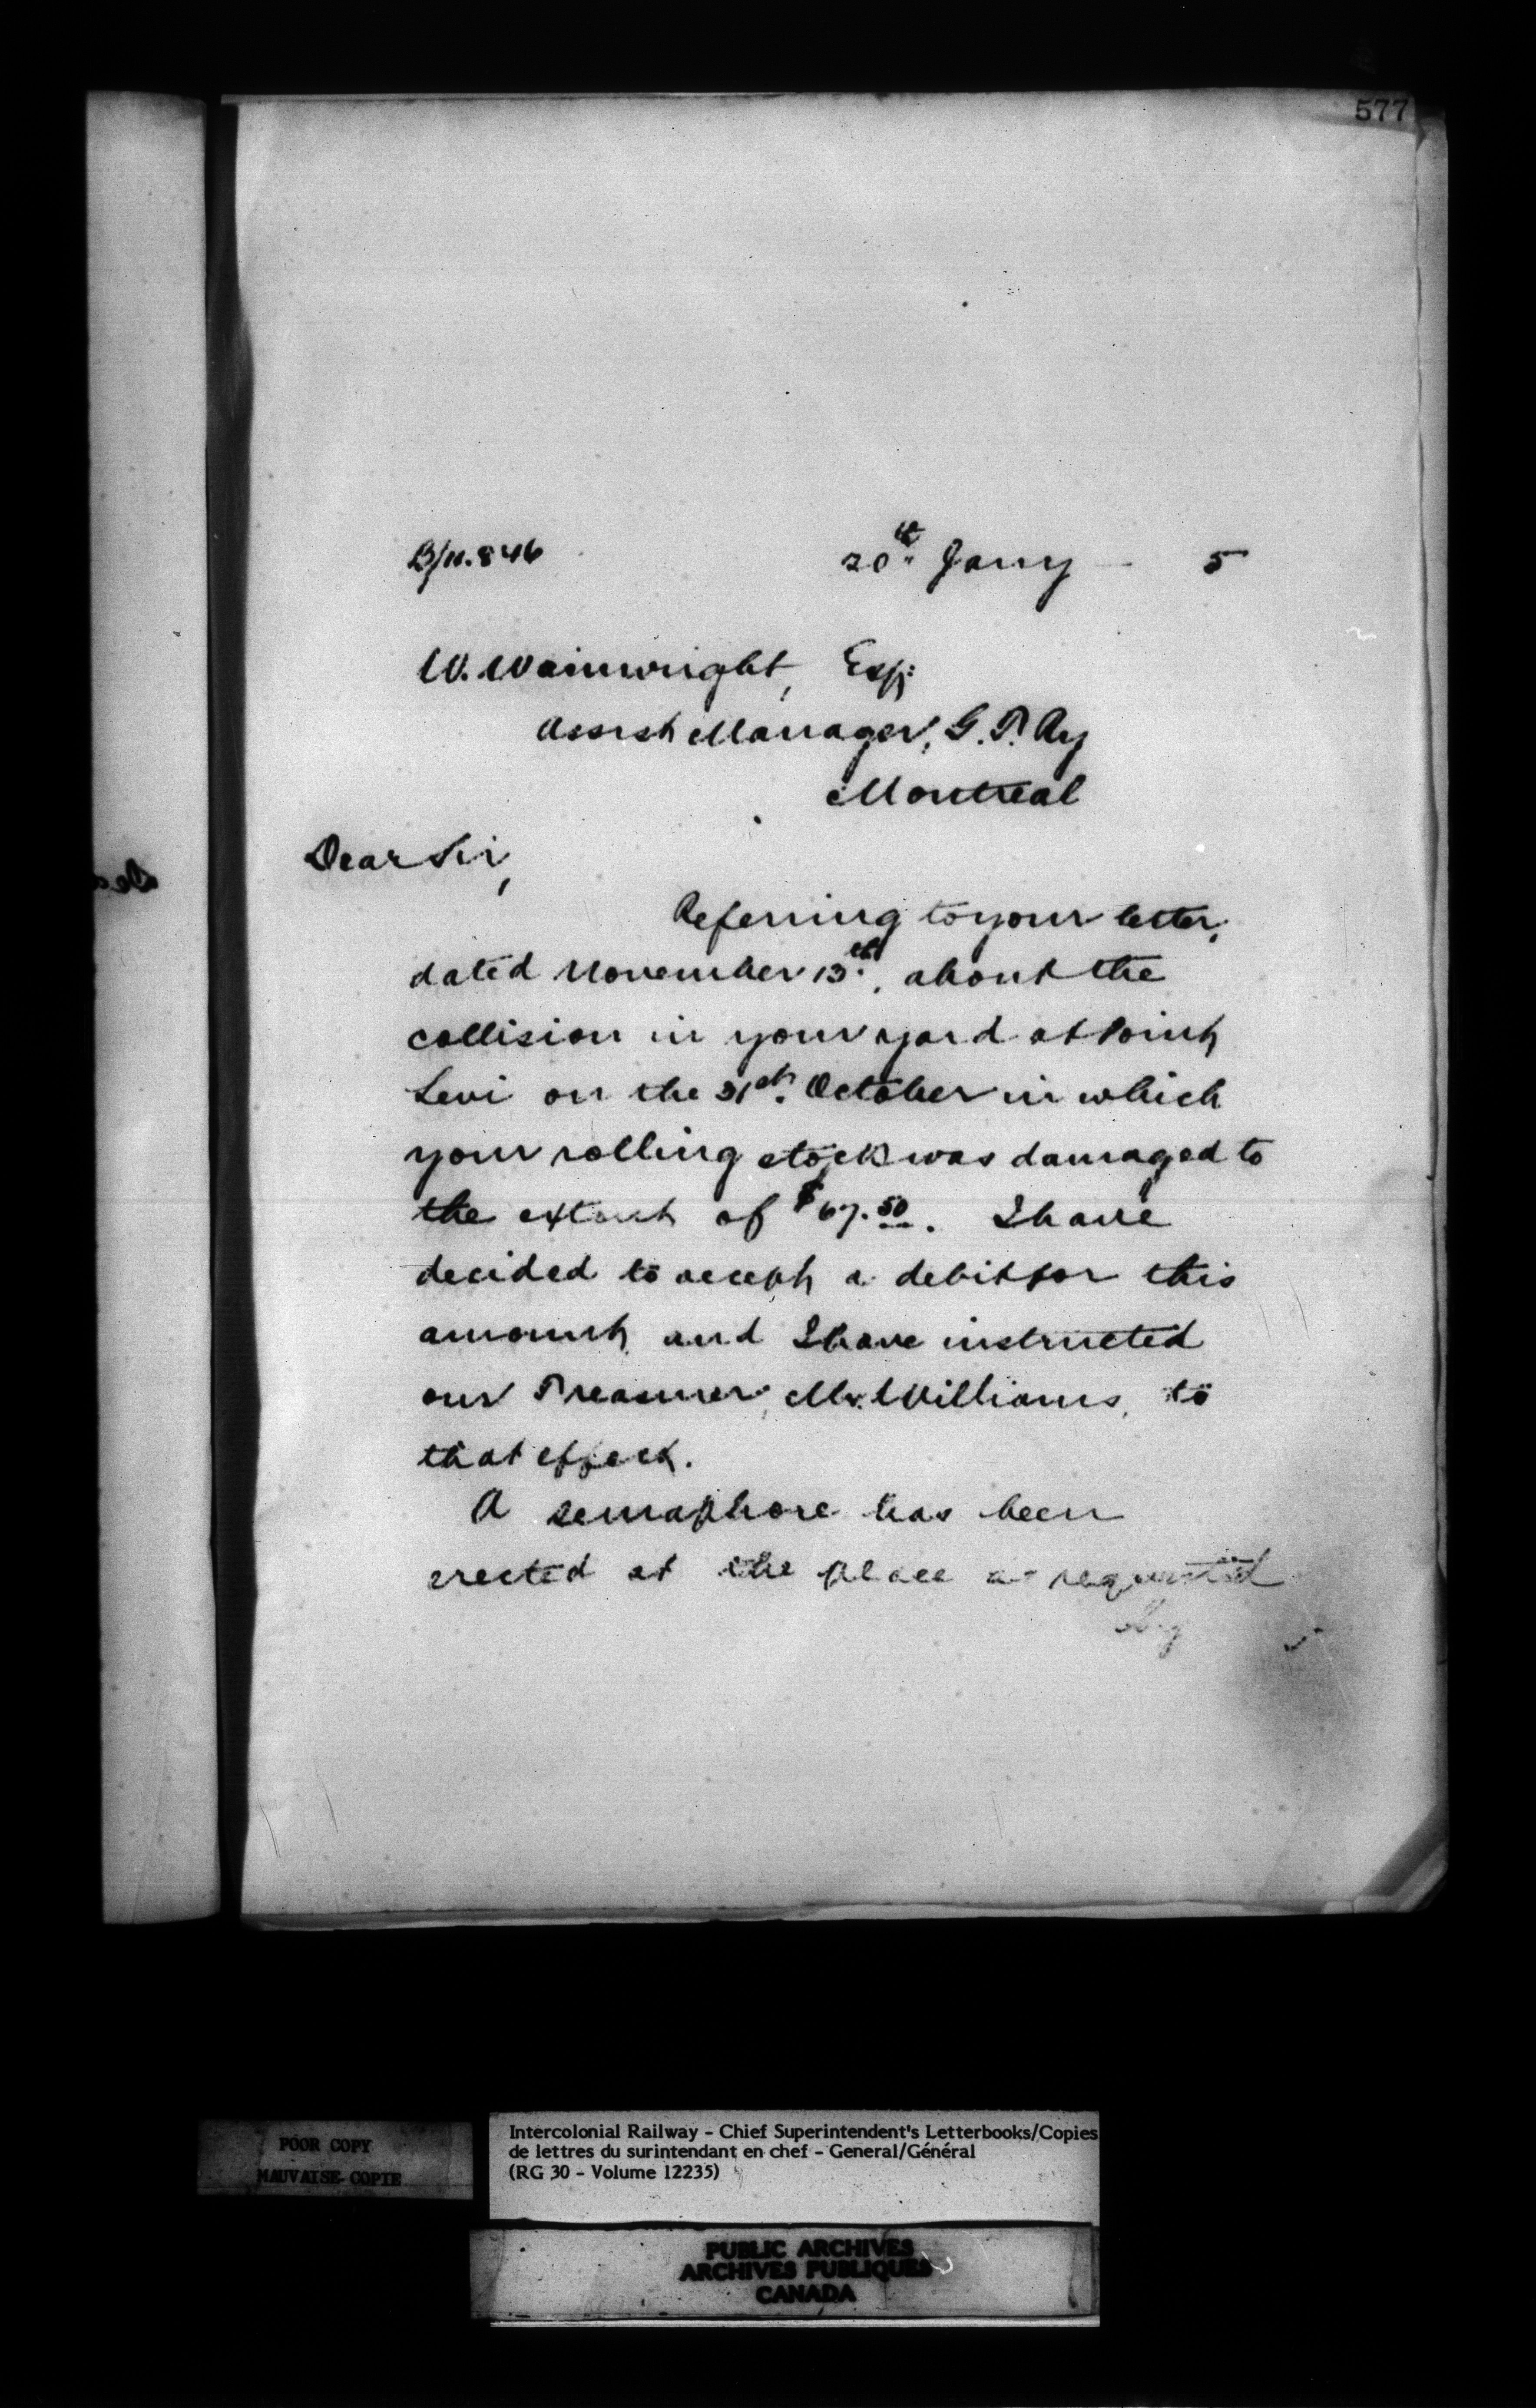 577
B/11.846 20th Jany 5
W. Wainwright, Esq:
Assist Manager, G. T. Ry
Montreal
Dear Sir,
Referring to your letter,
dated November 13th, about the
collision in your yard at Point
Levi on the 31st. October in which
your rolling stock was damaged to
the extent of $67.50. I have
decided to accept a debit for this
amount and I have instructed
our Treasurer, Mr. Williams, to
that effect.
A semaphore has been
erected at the place as requested
by
POOR COPY
MAUVAISE COPIE
Intercolonial Railway - Chief Superintendent's Letterbooks/Copies
de lettres du surintendant en chef - General/Général
(RG 30 - Volume 12235)
PUBLIC ARCHIVES
ARCHIVES PUBLIQUES
CANADA